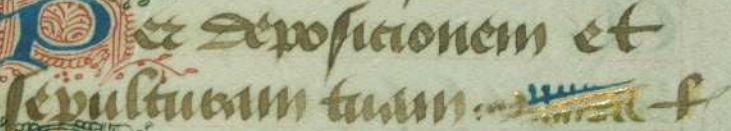 Per depositionem et
sepulturam tuam